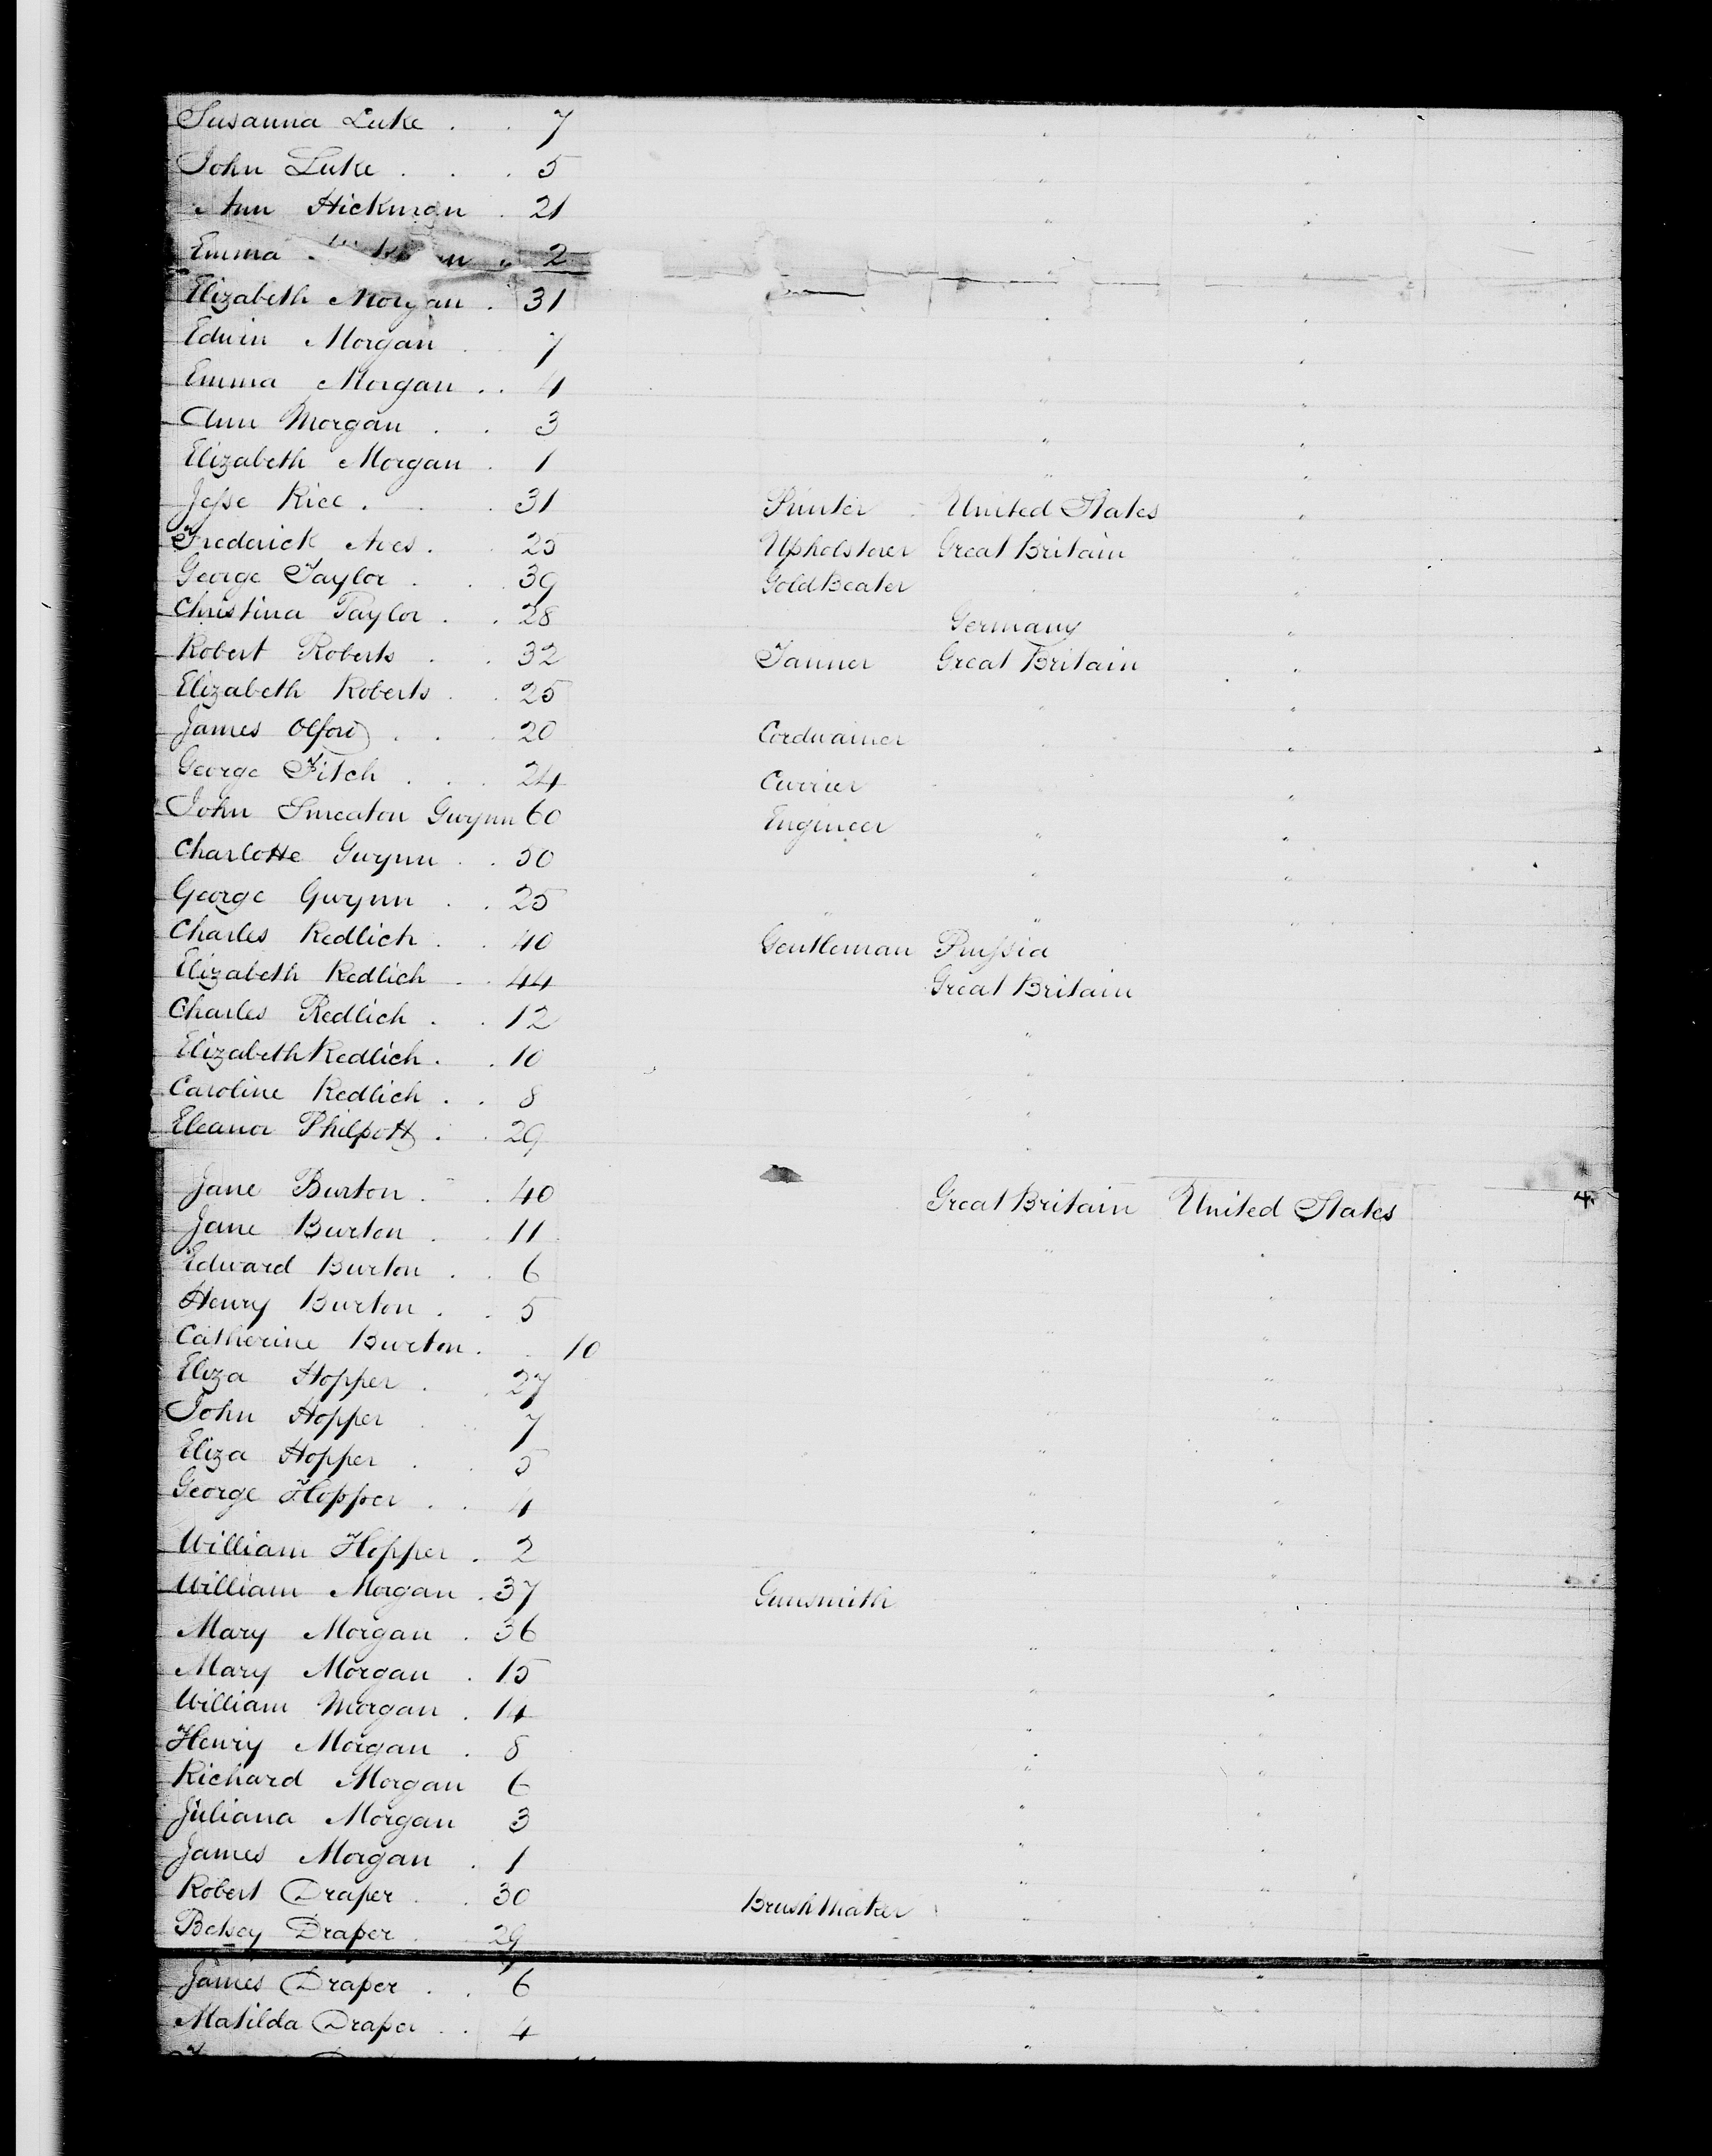 Susanna Luke . . 7 " "
John Luke . . . 5 " "
Ann Hickman . 21 " "
Emma . 2 " "
Elizabeth Morgan . 31 " "
Edwin Morgan . 7 " "
Emma Morgan . . 4 " "
Ann Morgan . . 3 " "
Elizabeth Morgan . 1 " "
Jesse Rice . . . 31 Printer United States "
Frederick Aves . . 25 Upholsterer Great Britain "
George Taylor . . 39 Gold Beater " "
Christina Taylor . . 28 Germany "
Robert Roberts . . 32 Tanner Great Britain "
Elizabeth Roberts . . 25 " "
James Olford . . . 20 Cordwainer " "
George Fitch . . . 24 Currier " "
John Smeaton Gwynn 60 Engineer " "
Charlotte Gwynn . . 50 " "
George Gwynn . . 25 " " "
Charles Redlich . . 40 Gentleman Prussia
Elizabeth Redlich . . 44 Great Britain
Charles Redlich . . 12 "
Elizabeth Redlich . . 10 "
Caroline Redlich . . 8 "
Eleanor Philpott . . 29 "
Jane Burton . . 40 Great Britain United States 4
Jane Burton . . 11 " "
Edward Burton . . 6 " "
Henry Burton . . 5 " "
Catherine Burton . . 10 " "
Eliza Hopper . . 27 " "
John Hopper . . 7 " "
Eliza Hopper . . 5 " "
George Hopper . . 4 " "
William Hopper . 2 " "
William Morgan . 37 Gunsmith " "
Mary Morgan . 36 " "
Mary Morgan . 15 " "
William Morgan . 14 " "
Henry Morgan . 8 " "
Richard Morgan 6 " "
Juliana Morgan 3 " "
James Morgan . 1 " "
Robert Draper . . 30 Brush Maker " "
Betsey Draper . . 29 " "
James Draper . . 6 " "
Matilda Draper . . 4 "